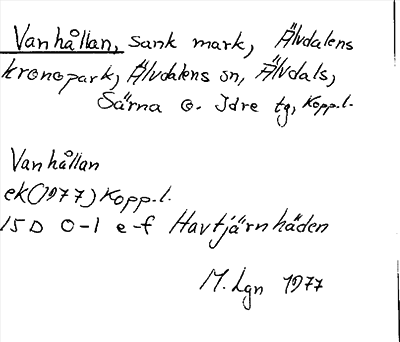 Vanhållan, sank mark, Älvdalens
kronopark, Älvdalens sn, Älvdals,
Särna o. Idre tg, Kopp.l.
Vanhållan
ek (1977) Kopp.l.
15D 0-1 e-f Havtjärnhäden
M.Lgn 1977